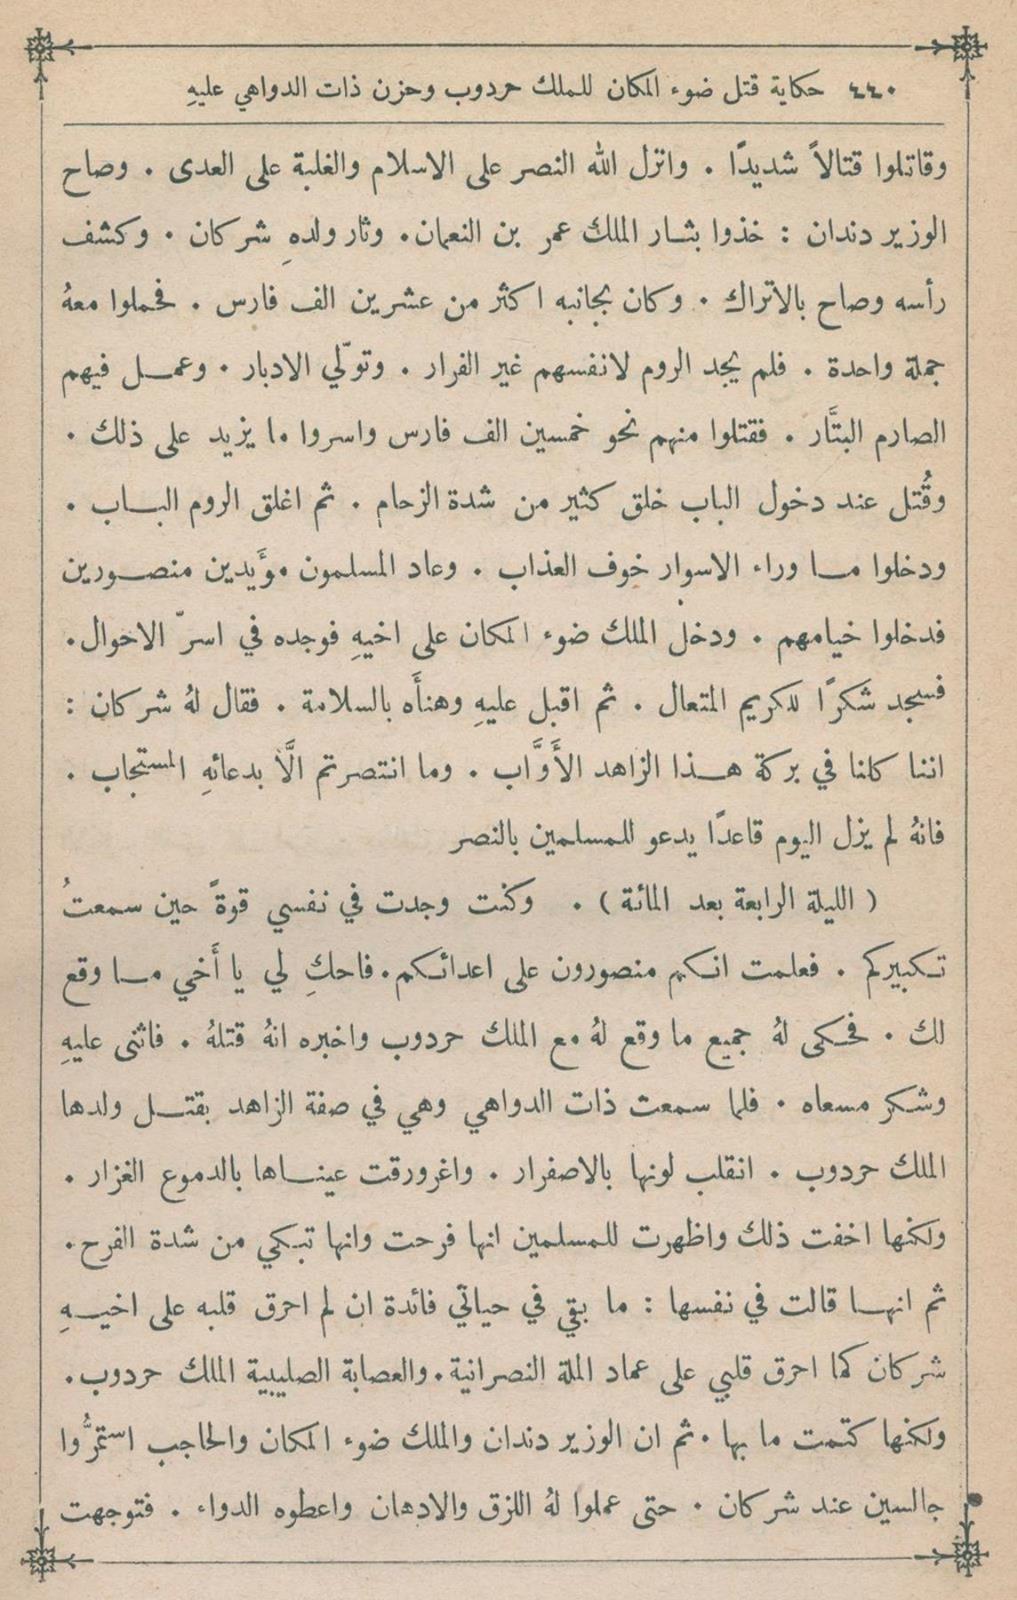 ٤٤٠ حكاية قتل ضوء المكان للملك حردوب وحزن ذات الدواهي عليهِ
وقاتلوا قتالاً شديدًا . وانزل الله النصر على الاسلام والغلبة على العدى . وصاح
الوزير دندان : خذوا بثـار الملك عمر بن النعمان. وثار ولدهِ شركان . وكشف
رأسه وصاح بالاتراك . وكان بجانبه اكثر من عشرين الف فارس . فحملوا معهُ
جملة واحدة . فلم يجد الروم لانفسهم غير الفرار . وتولّي الادبار . وعمـل فيهم
الصارم البتَّار . فقتلوا منهم نحو خمسين الف فارس واسروا ما يزيد على ذلك .
وقُتل عند دخول الباب خلق كثير من شدة الزحام . ثم اغلق الروم البـاب .
ودخلوا مـا وراء الاسوار خوف العذاب . وعاد المسلمون مؤَيدين منصـورين
فدخلوا خيامهم . ودخل الملك ضوء المكان على اخيهِ فوجده في اسرّ الاحوال.
فسجد شكرًا للكريم المتعال . ثم اقبل عليهِ وهنأَه بالسلامة . فقال لهُ شركان :
اننا كلنا في بركة هـذا الزاهد الأَوَّاب . وما انتصرتم الَّا بدعائهِ المستجاب .
فانهُ لم يزل اليوم قاعدًا يدعو للمسلمين بالنصر
( الليلة الرابعة بعد المائة ) . وكنت وجدت في نفسي قوةً حين سمعتُ
تـكبيركم . فعلمت انـكم منصورون على اعدائـكم. فاحكِ لي يا أَخي مـا وقع
لك . فحـكى لهُ جميع ما وقع لهُ مع الملك حردوب واخبره انهُ قتلهُ . فاثنى عليهِ
وشـكر مسعاه . فلما سمعت ذات الدواهي وهي في صفة الزاهد بقتـل ولدها
الملك حردوب . انقلب لونها بالاصفرار . واغرورقت عينـاها بالدموع الغزار .
ولكنها اخفت ذلك واظهرت للمسلمين انها فرحت وانها تبـكي من شدة الفرح.
ثم انهـا قالت في نفسها : ما بقي في حياتي فائدة ان لم احرق قلبه على اخيـهِ
شركان كما احرق قلبي على عماد الملة النصرانية. والعصابة الصليبية الملك حردوب.
ولكنها كتمت ما بها . ثم ان الوزير دندان والملك ضوء المكان والحاجب استمرُّوا
جالسين عند شركان . حتى عملوا لهُ اللزق والادهان واعطوه الدواء . فتوجهت